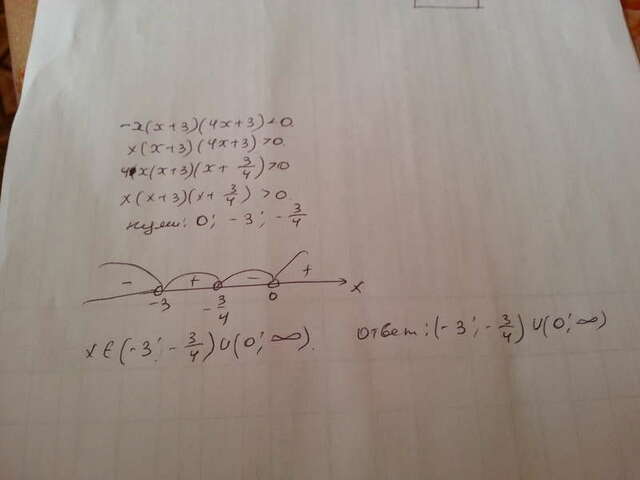 -x(x+3)(4x+3)<0.
x(x+3)(4x+3)>0.
4x(x+3)(x+3/4)>0
x(x+3)(x+3/4)>0.
нули: 0; -3; -3/4
- + - +
-3 -3/4 0 x
x∈(-3;-3/4)∪(0;∞).
Ответ: (-3;-3/4)∪(0;∞)